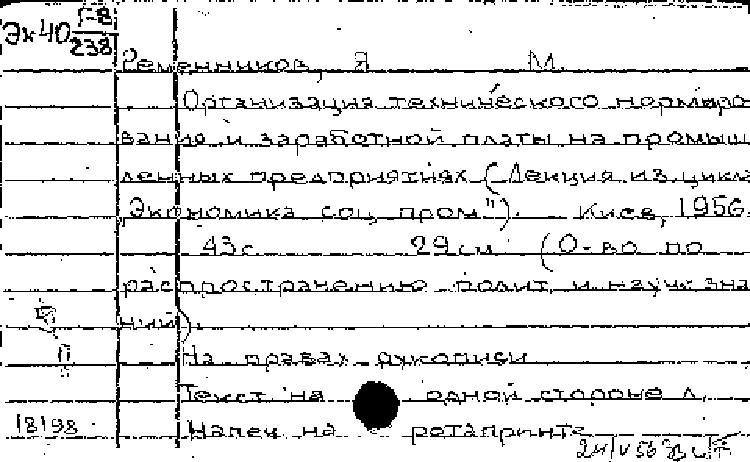 Эк40 Г-8
238
Ременников, Я М.
Организация технического нормиро
вания и заработной платы на промыш
ленных предприятиях (Лекция из цикла
"Экономика соц. пром."). Киев, 1956.
43с 29см (О-во по
распространению полит. и научн. зна
ний).
На правах рукописи
Текст на одной стороне л.
18198 Напеч. на ротапринте